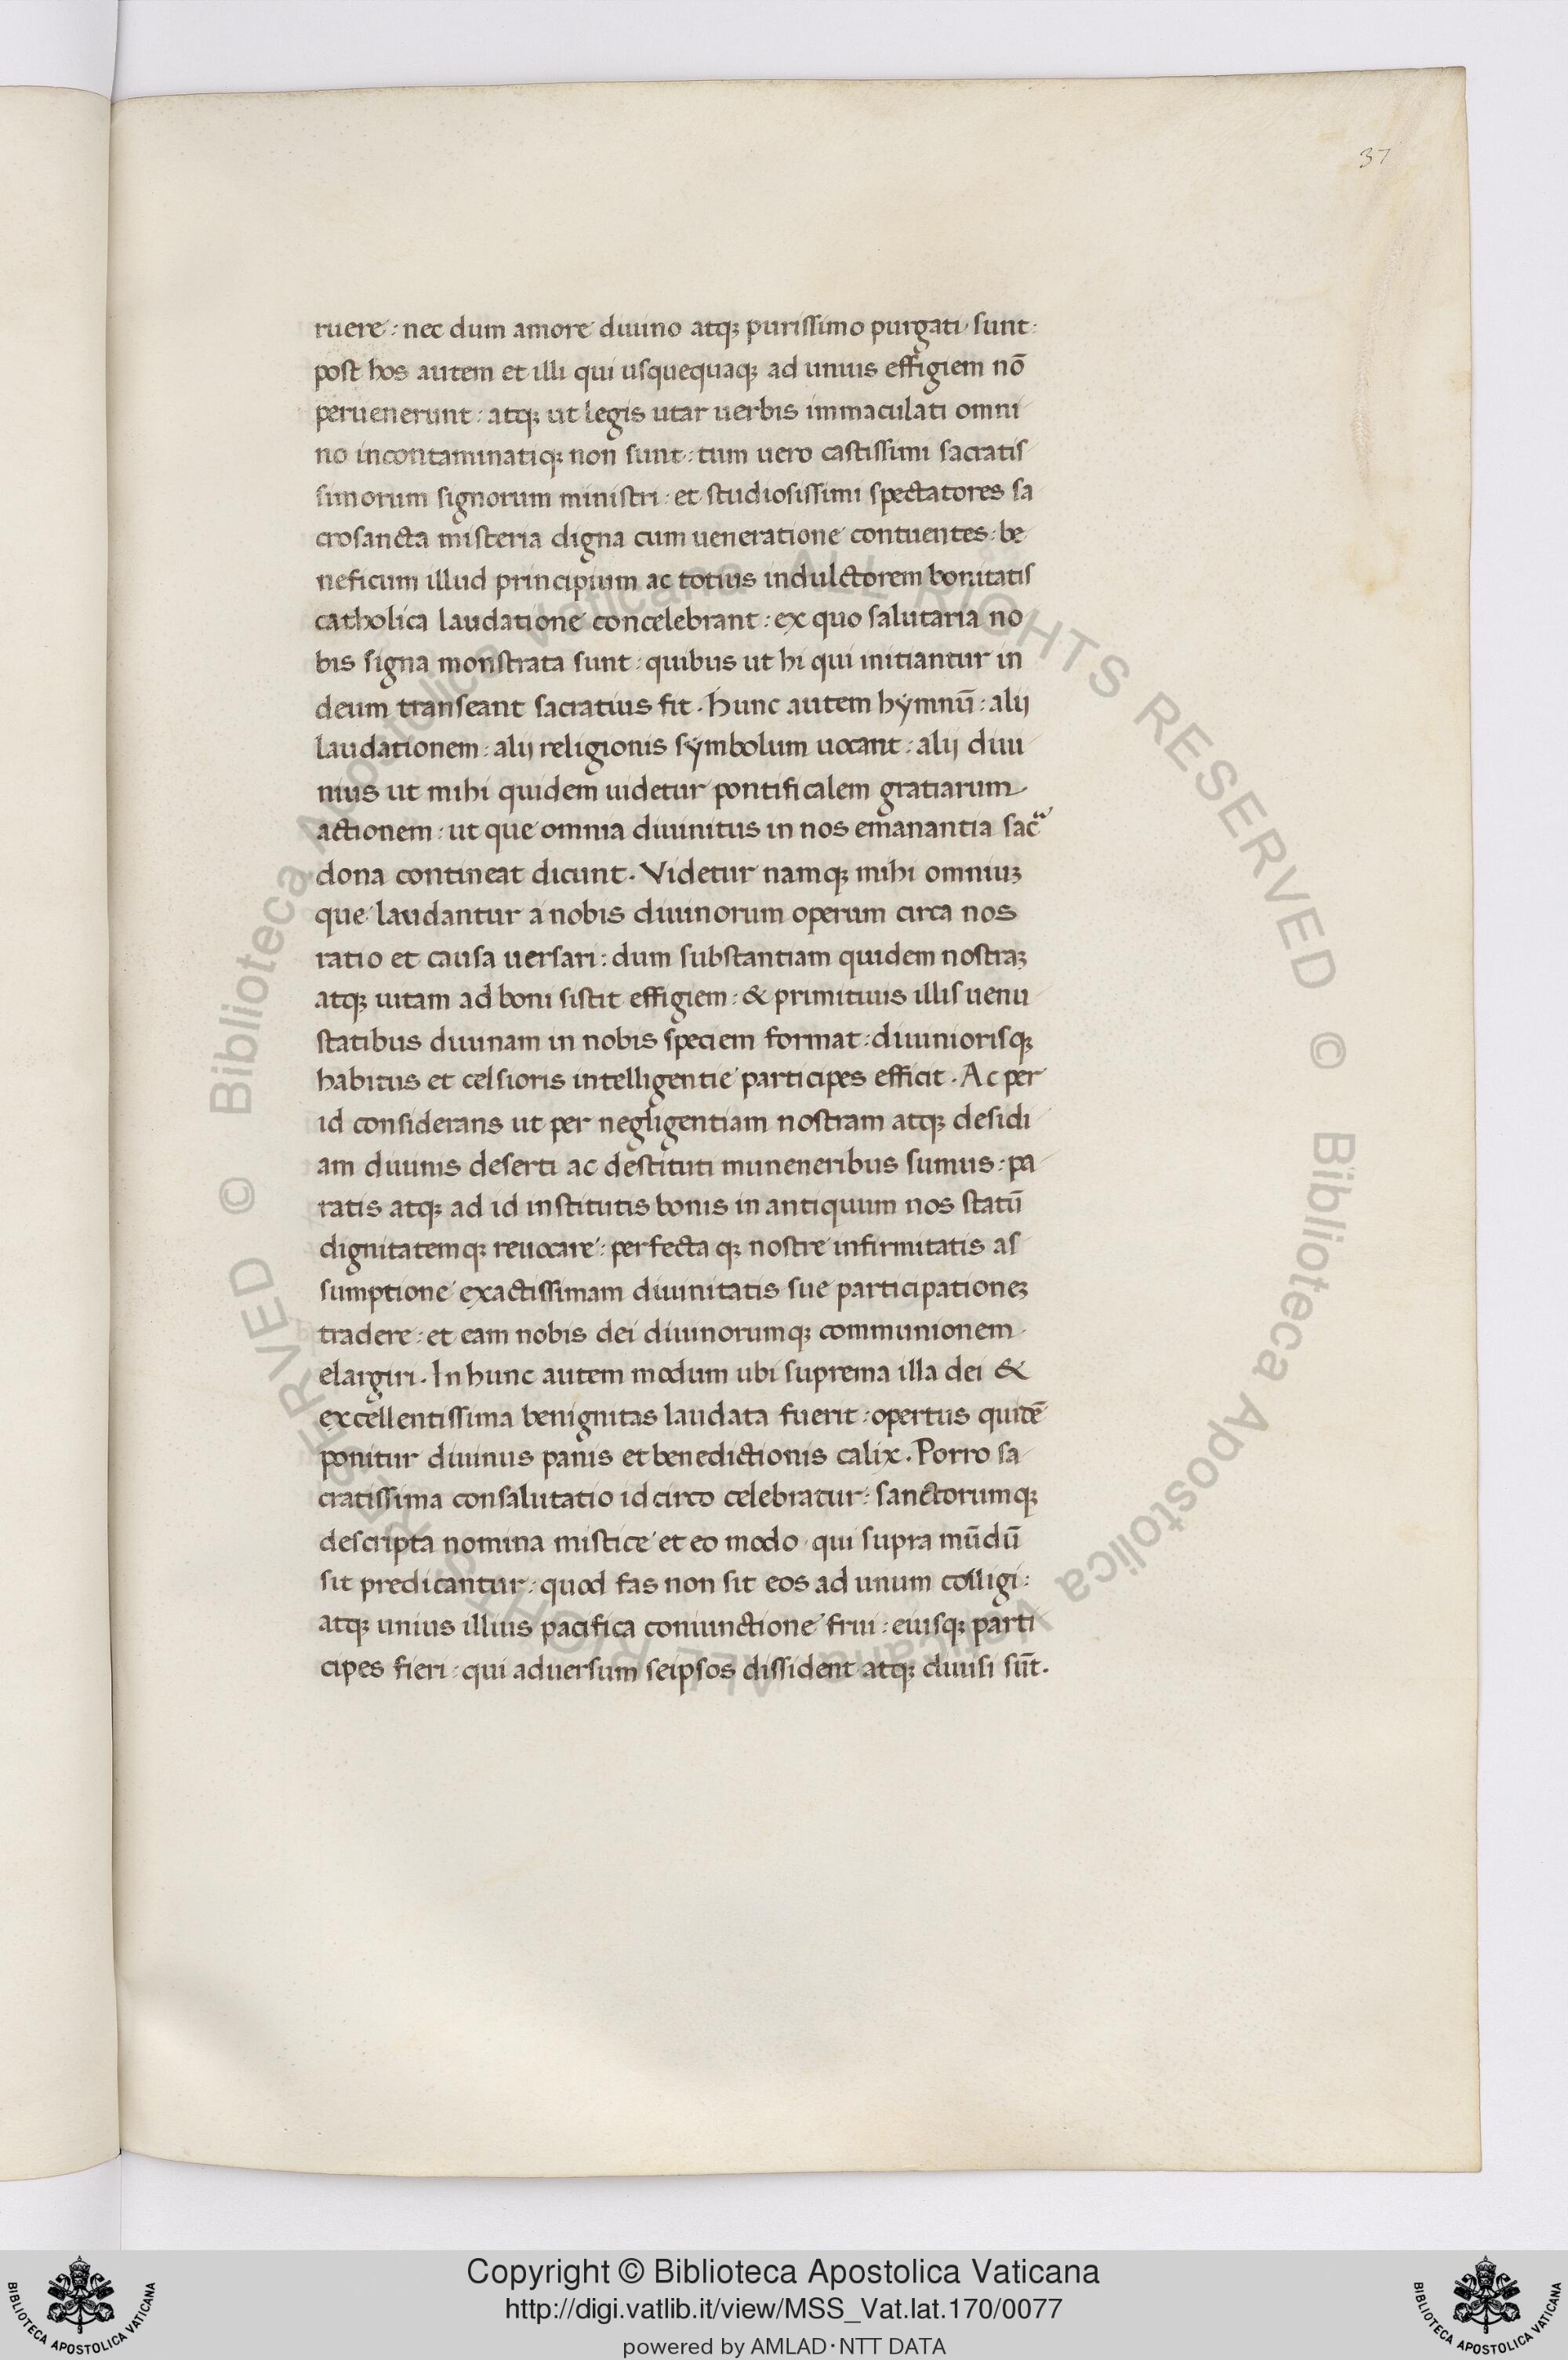 37
ruere : nec dum amore diuino atqꝫ purissimo purgati sunt :
post hos autem et illi qui usquequaqꝫ ad unius effigiem nō
peruenerunt : atqꝫ ut legis utar uerbis immaculati omni
no incontaminatiqꝫ non sunt : tum uero castissimi sacratis
simorum signorum ministri : et studiosissimi spectatores sa
crosancta misteria digna cum ueneratione contuentes : be
neficum illud principium ac totius indulctorem bonitatis
catholica laudatione concelebrant : ex quo salutaria no
bis signa monstrata sunt : quibus ut hi qui initiantur in
deum transeant sacratius fit . Hunc autem hymnū : alij
laudationem : alij religionis symbolum uocant : alij diui
nius ut mihi quidem uidetur pontificalem gratiarum
actionem : ut que omnia diuinitus in nos emanantia sac̄ᵃ
dona contineat dicunt . Videtur namqꝫ mihi omniuꝫ
que laudantur a nobis diuinorum operum circa nos
ratio et causa uersari : dum substantiam quidem nostraꝫ
atqꝫ uitam ad boni sistit effigiem : & primitiuis illis uenu
statibus diuinam in nobis speciem format : diuiniorisqꝫ
habitus et celsioris intelligentie participes efficit . Ac per
id considerans ut per negligentiam nostram atqꝫ desidi
am diuinis deserti ac destituti muneneribus sumus : pa
ratis atqꝫ ad id institutis bonis in antiquum nos statū
dignitatemqꝫ reuocare : perfecta qꝫ nostre infirmitatis as
sumptione exactissimam diuinitatis sue participationeꝫ
tradere : et eam nobis dei diuinorumqꝫ communionem
elargiri . In hunc autem modum ubi suprema illa dei &
excellentissima benignitas laudata fuerit : opertus quidē
ponitur diuinus panis et benedictionis calix . Porro sa
cratissima consalutatio id circo celebratur : sanctorumqꝫ
descripta nomina mistice et eo modo qui supra mūdū
sit predicantur : quod fas non sit eos ad unum colligi :
atqꝫ unius illius pacifica coniunctione frui : eiusqꝫ parti
cipes fieri : qui aduersum seipsos dissident atqꝫ diuisi sūt .
© Biblioteca Apostolica Vaticana ALL RIGHTS RESERVED
© Biblioteca Apostolica Vaticana ALL RIGHTS RESERVED
Copyright © Biblioteca Apostolica Vaticana
http://digi.vatlib.it/view/MSS_Vat.lat.170/0077
powered by AMLAD·NTT DATA
BIBLIOTECA APOSTOLICA VATICANA
BIBLIOTECA APOSTOLICA VATICANA